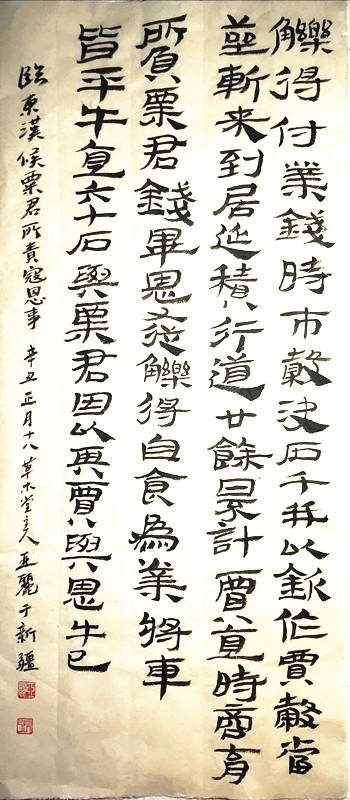 觻得付業錢時市穀決石千并以欽作賈穀當
並斬来到居延積行道廿餘日不計賈直時商育
所負粟君錢畢恩又從觻得自食為業將車
皆平牛直六十石與粟君因以其賈與恩牛已
臨東漢候粟君所責寇恩事 辛丑正月十八草木堂主人亚麗于新疆